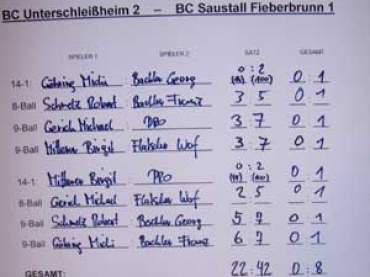 BC Unterschleißheim 2 – BC Saustall Fieberbrunn 1
SPIELER 1 SPIELER 2 SATZ GESAMT
0 : 2
14-1: Göhring Michi : Bachler Georg (19) (100) 0 1
8-Ball Schmelz Robert : Bachler Franz 3 5 0 1
9-Ball Gerich Michael : 3 7 0 1
9-Ball Birgit : Wolf 3 7 0 1
0 : 2
14-1: Birgit : 0 1
8-Ball Gerich Michael Wolf 2 5 0 1
9-Ball Schmelz Robert : Bachler Georg 5 7 0 1
9-Ball Göhring Michi : Bachler Franz 6 7 0 1
GESAMT: 22:42 0:8